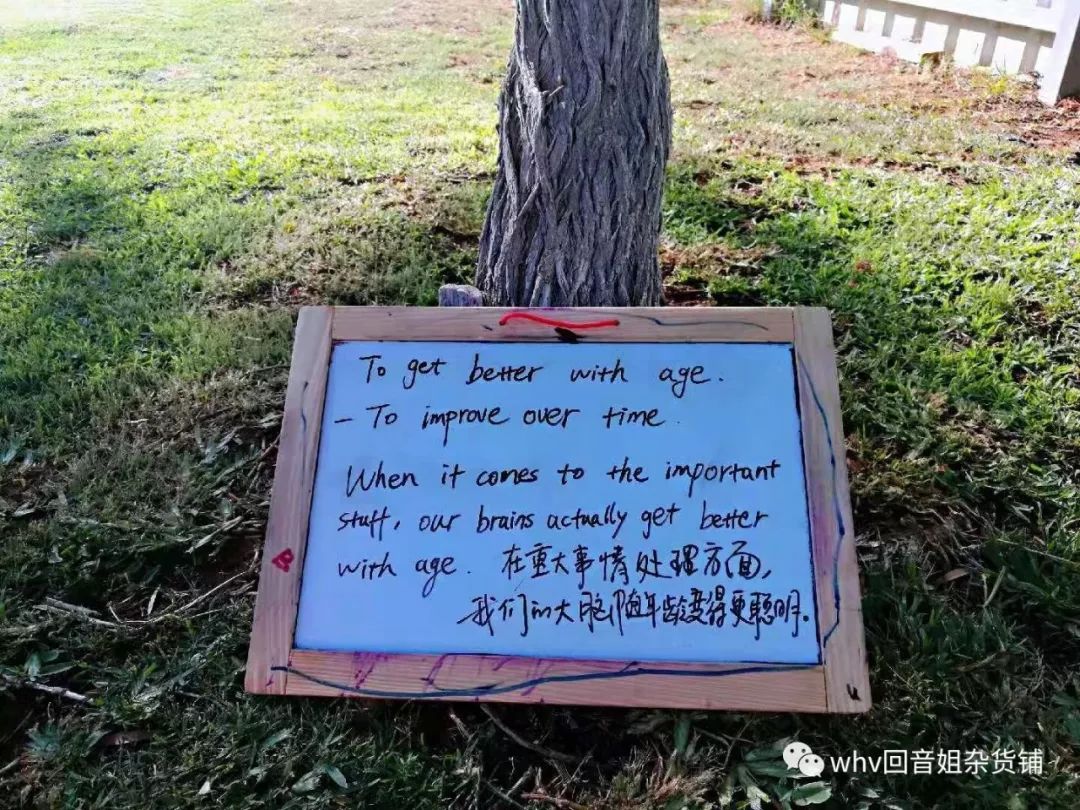 To get better with age.
- To improve over time.
When it comes to the important
stuff, our brains actually get better
with age. 在重大事情处理方面,
我们的大脑随年龄变得更聪明.
whv回音姐杂货铺